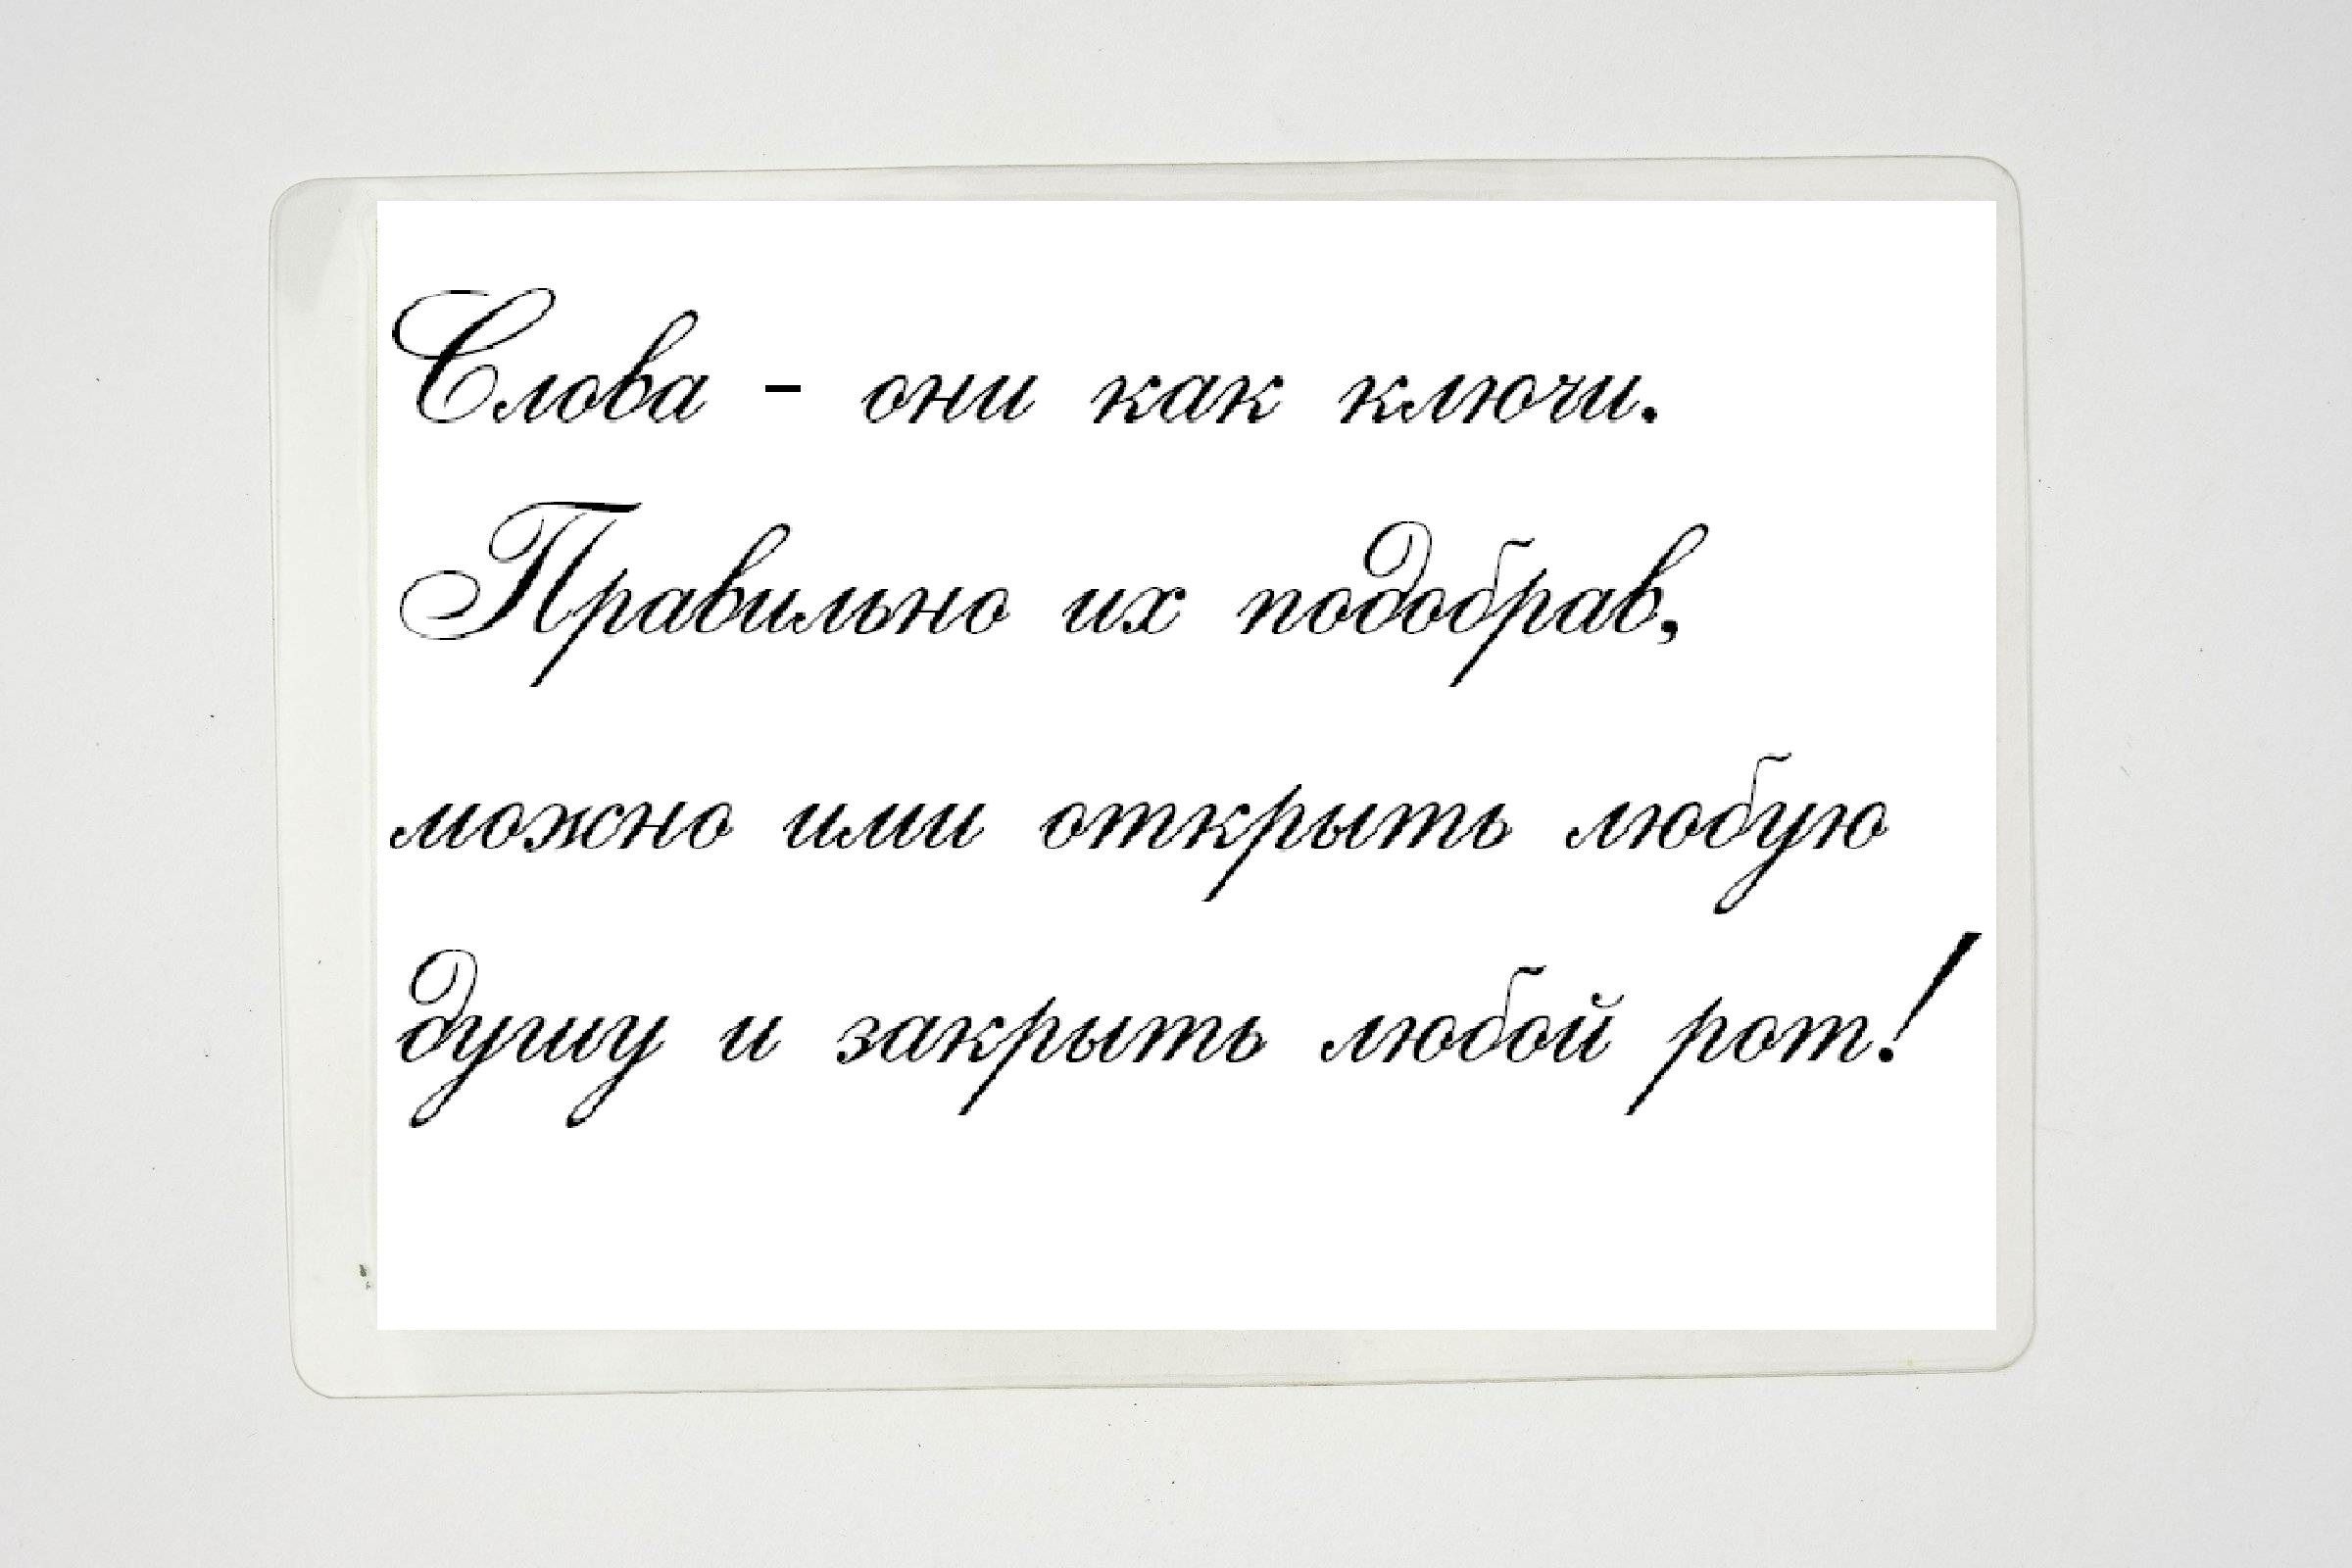 Слова - они как ключи.
Правильно их подобрав,
можно ими открыть любую
душу и закрыть любой рот!